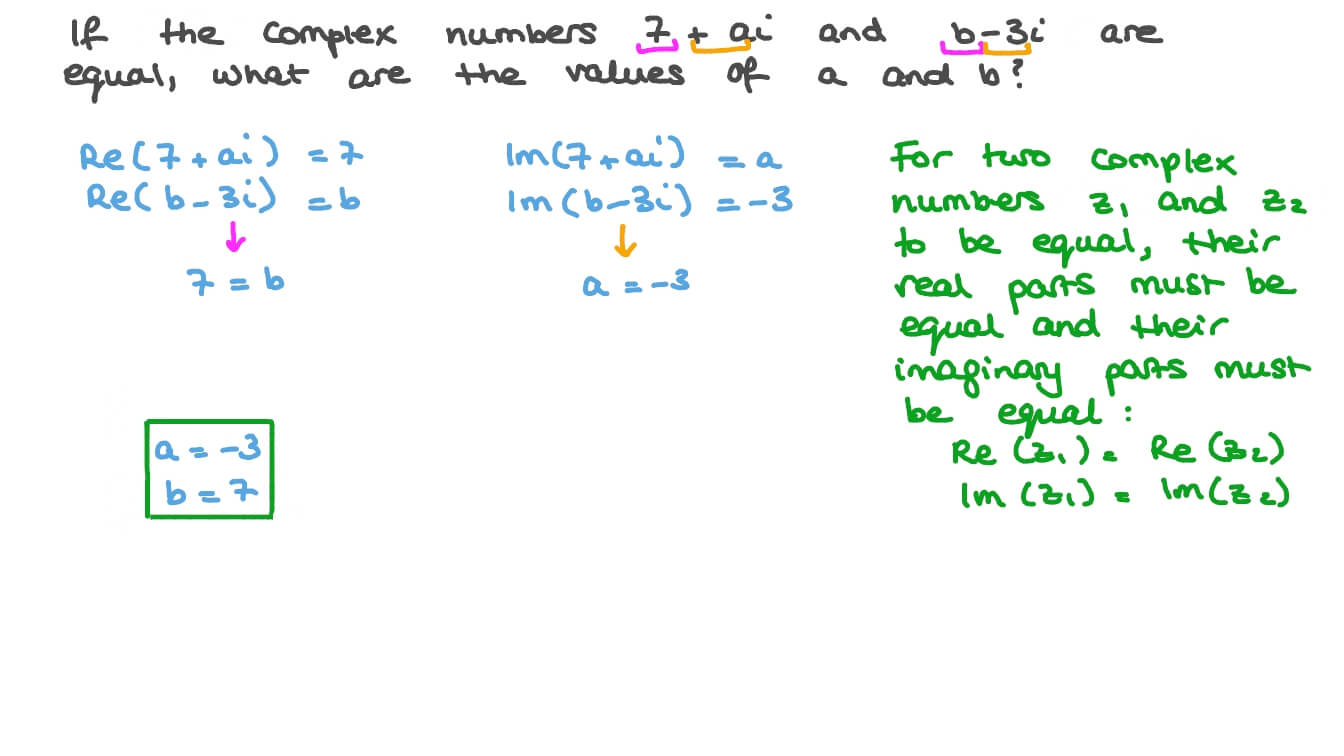 If the complex numbers 7 + ai and b - 3i are
equal, what are the values of a and b?
Re(7 + ai) = 7
Re(b - 3i) = b
7 = b
Im(7 + ai) = a
Im(b - 3i) = -3
a = -3
For two complex
numbers z₁ and z₂
to be equal, their
real parts must be
equal and their
imaginary parts must
be equal:
Re (z₁) = Re (z₂)
Im (z₁) = Im (z₂)
a = -3
b = 7